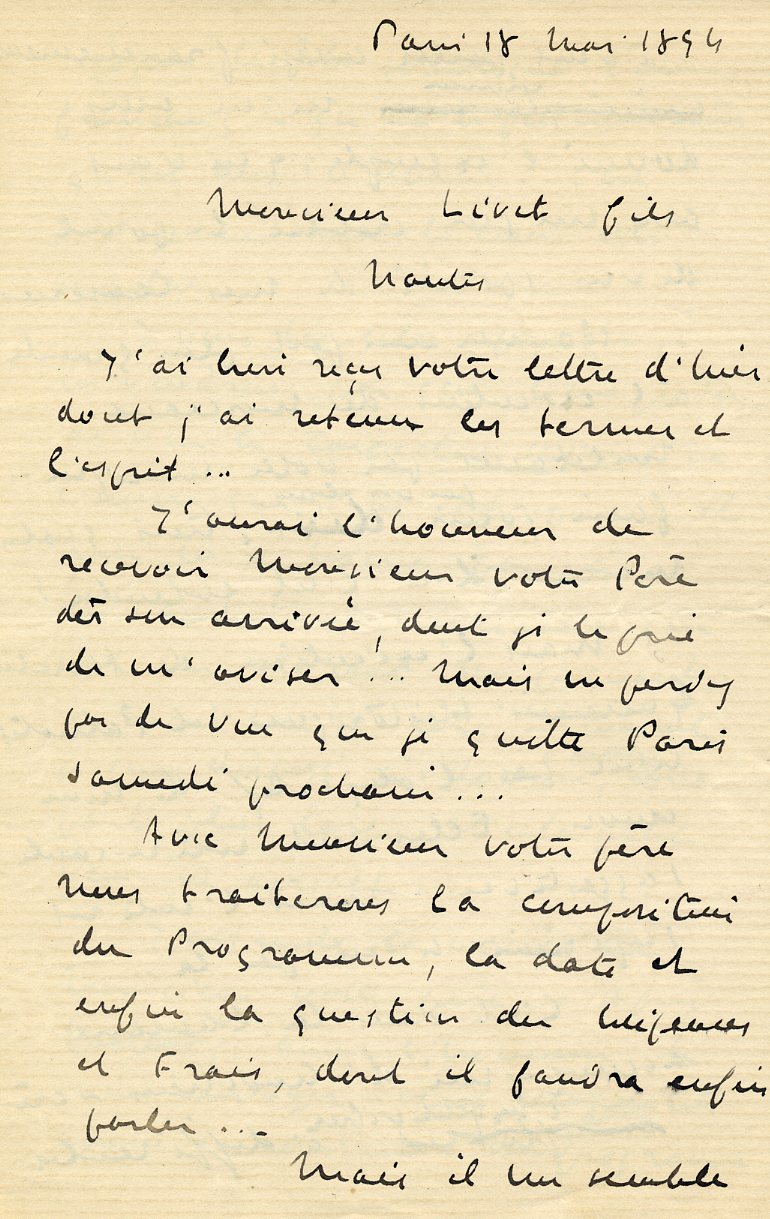 Paris 18 mai 1894
Monsieur Livet fils
Nantes
J'ai bien reçu votre lettre d'hier
dont j'ai retenu les termes et
l'esprit...
J'aurai l'honneur de
recevoir Monsieur votre Père
dès son arrivée, dont je le prie
de m'aviser!... Mais ne perdez
pas de vue que je quitte Paris
samedi prochain...
Avec Monsieur votre père
nous traiterons la composition
du Programme, la date et
enfin la question des
et Frais, dont il faudra enfin
parler...
Mais il me semble